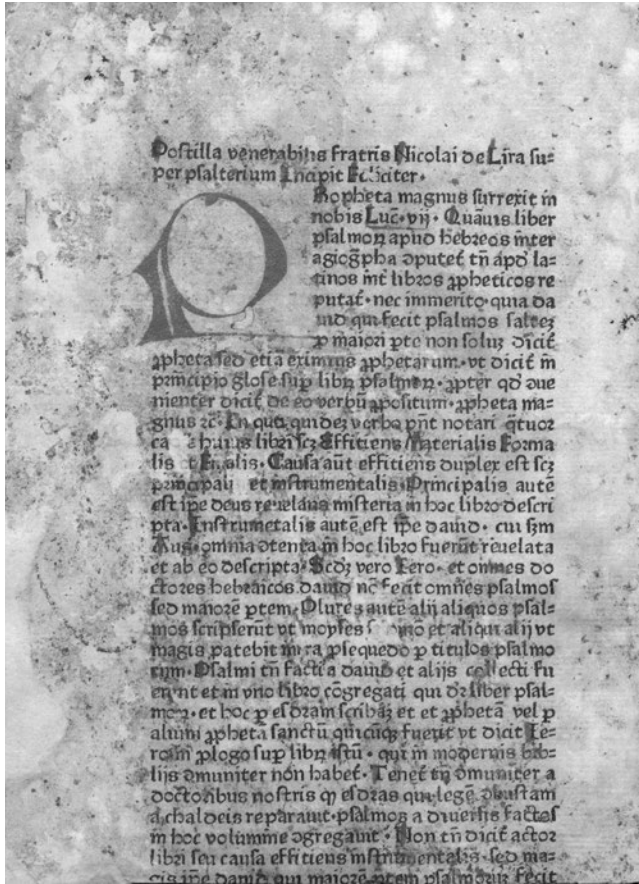 Postilla venerabilis fratris Nicolai de Lira su=
per psalterium Incipit Feliciter.
PRopheta magnus surrexit in
nobis Luc̄·vij· Quāuis liber
psalmoꝝ apud hebreos inter
agiog̃pha ꝯputet᷑ tñ apđ la-
tinos int᷑ libros ꝓpheticos re
putat᷑·nec immerito·quia da
uid qui fecit psalmos saltez
ꝑ maiori ꝑte non soluz dicit᷑
ꝓpheta sed etiā eximius ꝓphetarum·vt dicit᷑ in
principio glose suꝑ libꝝ psalmoꝝ·ꝓpter qđ ꝯue
nienter dicit᷑ de eo verbū ꝓpositum·ꝓpheta ma-
gnus ⁊c̄·In quo quidez verbo pñt notari q̈tuor
ca e huius libri scꝫ Effitiens Materialis Forma
lis t Finalis·Causa aūt effitiens duplex est scꝫ
principali et instrumentalis·Principalis autē
est ip̄e deus reuelans misteria in hoc libro descri
pta·Instrumētalis autē est ip̄e dauid· cui sꝫm
Aug·omnia ꝯtenta in hoc libro fuerūt reuelata
et ab eo descripta·Scđꝫ vero Iero·et omnes do
ctores hebraicos dauid nō fecit omnes psalmos
sed maiorē ꝑtem·Plures autē alij aliquos psal-
mos scripserūt vt moyses mō et aliqui alij vt
magis patebit infra ꝓsequēdo ꝑ titulos psalmo
rum·Psalmi tñ facti a dauid et alijs collecti fu
erunt et in vno libro cōgregati qui dr̄ liber psal-
moꝝ·et hoc ꝑ esdram scribāꝫ et et ꝓphetā vel ꝑ
alium ꝓpheta sanctū quicūqꝫ fuerit vt dicit Ie-
roim ꝓlogo suꝑ libꝝ istū· qui in modernis bib-
lijs ꝯmuniter non habet᷑·Tenet᷑ tñ ꝯmuniter a
doctoribus nostris ꝙ esdras qui legē ꝯbustam
a chaldeis reparauit·psalmos a diuersis factos
in hoc volumine ꝯgregauit·Non tñ dicit᷑ actor
libri seu causa effitiens instrumentalis·sed ma-
gis ip̄e dauid qui maiorē ꝑtem psalmoruz fecit